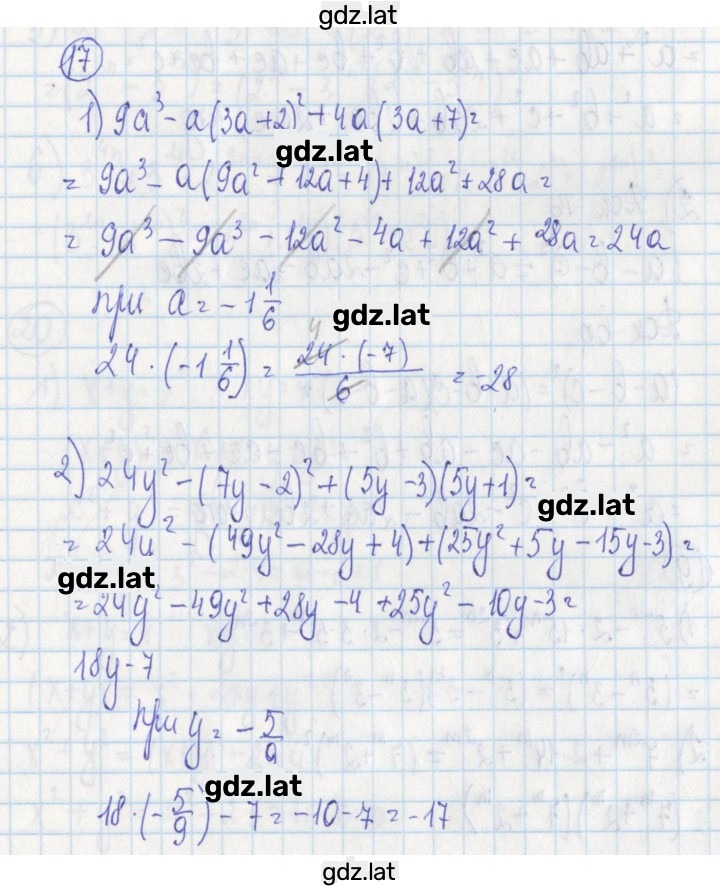 gdz.lat
17
1) 9a³ - a(3a+2)² + 4a(3a+7) =
gdz.lat
= 9a³ - a(9a² + 12a+4) + 12a² + 28a =
= 9a³ - 9a³ - 12a² - 4a + 12a² + 28a = 24a
при a = -1 1/6
gdz.lat
24 · (-1 1/6) = 24 · (-7) / 6 = -28
4
2) 24y² - (7y - 2)² + (5y - 3)(5y+1) =
gdz.lat
= 24y² - (49y² - 28y + 4) + (25y² + 5y - 15y - 3) =
gdz.lat
= 24y² - 49y² + 28y - 4 + 25y² - 10y - 3 =
18y - 7
при y = - 5/9
gdz.lat
18 · (- 5/9) - 7 = -10 - 7 = -17
gdz.lat